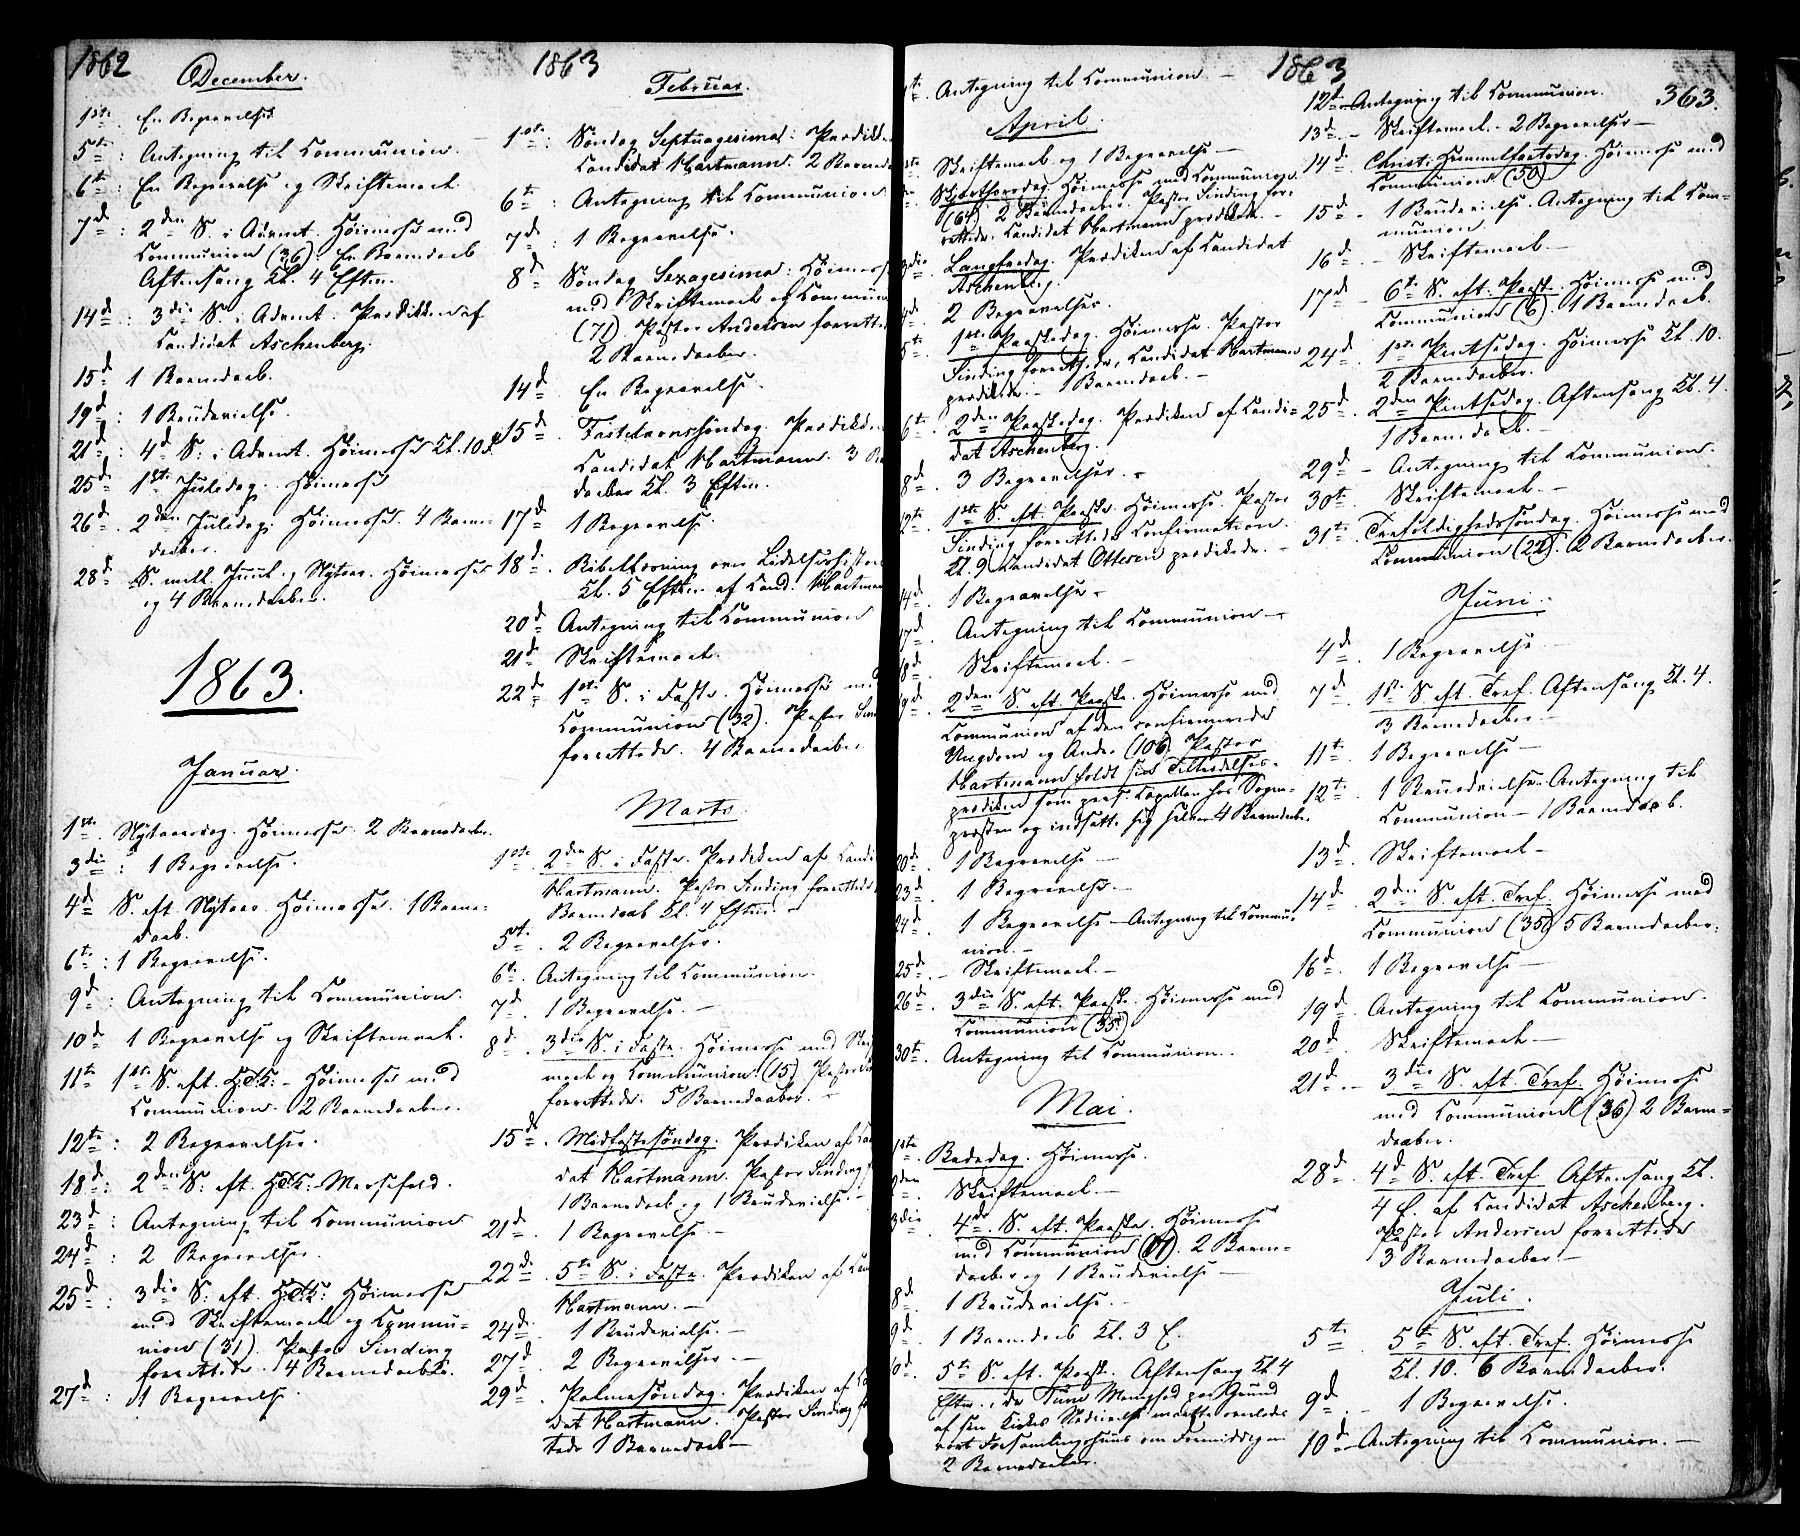 1862
December.
1ste. En Begravelse
5te: Antegning til Communion.
6te: En Begravelse og Skriftemaal.
7d: 2den S. i Advent. Høimesse med
Communion (36). En Barnedaab
Aftensang Kl. 4 Eftm.
14d: 3die S. i Advent. Prædiken af
Candidat Aschenberg.
15d. 1 Barnedaab.
19d: 1 Brudevielse.
21d: 4d S. i Advent. Høimesse Kl. 10
25d: 1ste Juledag. Høimesse
26d. 2den Juledag. Høimesse. 4 Barne-
daaber.
28d. S. mell. Juul og Nytaar. Høimesse
og 4 Barnedaaber.
1863.
Januar.
1ste. Nytaarsdag. Høimesse. 2 Barnedaaber.
3die: 1 Begravelse.
4d S. eft. Nytaar. Høimesse. 1 Barne-
daab.
6te: 1 Begravelse.
9d: Antegning til Communion.
10d 1 Begravelse og Skriftemaal.
11te 1ste S. eft. H.3.K. - Høimesse med
Communion. 2 Barnedaaber.
12te: 2 Begravelser.
18d: 2den S. eft. H3K. Messefald.
23d: Antegning til Communion
24d: 2 Begravelser.
25d: 3die S. eft. H3K: Høimesse
med Skriftemaal og Commu-
nion (31). Pastor Sinding
forrettede. 4 Barnedaaber.
27d: 1 Begravelse.
1863
Februar.
1ste: Søndag Septuagesima: Prædiken
Candidat Hartmann. 2 Barneda
6te: Antegning til Communion
7d: 1 Begravelse.
8d Søndag Sexagesima: Høimesse
med Skriftemaal og Commun
(71) Pastor Andersen forrettede
2 Barnedaaber.
14d. En Begravelse.
15d. Fastelavnssøndag. Prædiken
Candidat Hartmann. 3 Ba
daaber Kl. 3 Eftm.
17d 1 Begravelse.
18d. Bibellæsning over Lidelseshistor
Kl. 5 Eftm. af Cand. Hartmann
20d Antegning til Communion
21d Skriftemaal.
22d. 1ste S. i Faste. Høimesse med
Communion (32). Pastor Sin
forrettede. 4 Barnedaaber.
Marts.
1ste. 2den S. i Faste. Prædiken af Candi
Hartmann. Pastor Sinding forrettede
Barnedaab Kl. 4 Eftm.
5te. 2 Begravelser.
6te. Antegning til Communion.
7d. 1 Begravelse. -
8d. 3die S. i Faste. Høimesse med Skrif
maal og Communion (15) Pastor
forrettede. 5 Barnedaaber. -
15d. Midfastesøndag. Prædiken af Can
dat Hartmann. Pastor Sinding f
1 Barnedaab og 1 Brudevielse. -
21d. 1 Begravelse. -
22d. 5te S. i Faste. Prædiken af Can
Hartmann. -
24d. 1 Brudevielse. -
27d. 2 Begravelser. -
29d. Palmesøndag. Prædiken af Ca
dat Hartmann. Pastor Sinding f
tede 1 Barnedaab -
1te. Antegning til Communion. -
April.
Skriftemaal og 1 Begravelse -
Skjærthorsdag. Høimesse med Communion
(64). 2 Barnedaaber. Pastor Sinding for-
rettede. Candidat Hartmann prædikede. -
3die. Langfredag. Prædiken af Candidat
Aschenberg.
4d. 2 Begravelser.
5te. 1ste Paaskedag. Høimesse. Pastor
Sinding forrettede, Candidat Hartmann
prædikede. - 1 Barnedaab. -
6te. 2den Paaskedag. Prædiken af Candi=
dat Aschenberg.
8d. 3 Begravelser. -
12te. 1ste S. eft. Paaske. Høimesse. Pastor
Sinding forrettede Confirmation.
Kl. 9. Candidat Ottesen prædikede. -
14d. 1 Begravelse -
17d. Antegning til Communion -
18d. Skriftemaal. -
19d. 2den S. eft. Paaske. Høimesse med
Communion af den confirmerede
Ungdom og Andre (106). Pastor
Hartmann holdt sin Tiltrædelses-
prædiken som pers. Capellan hos Sogne-
præsten og indsatte sig selv. 4 Barnedaaber.
20d. 1 Begravelse -
23d. 1 Begravelse. -
24d. 1 Begravelse - Antegning til Commu-
nion. -
25d. - Skriftemaal. -
26d. 3die S. eft. Paaske. Høimesse med
Communion (35)
30te. Antegning til Communion.
Mai.
1ste. Bededag. Høimesse.
2den. Skriftemaal. -
3die. 4de S. eft. Paaske. Høimesse
med Communion. 2 Barne-
daaber og 1 Brudevielse -
8d. 1 Brudevielse. -
9d. 1 Barnedaab Kl. 3 E.
5te S. eft. Paaske. Aftensang Kl. 4
Eftm., da Tune Menighed paa Grund
af sin Kirkes Nedrivelse maatte overlades
vort Forsamlingshuus om Formiddagen
2 Barnedaaber.
1863
363.
12te - Antegning til Communion.
13d. - Skriftemaal - 2 Begravelser -
14d. Christi Himmelfartsdag. Høimesse med
Communion (50)
15d. - 1 Brudevielse. Antegning til Com-
munion.
16d. - Skriftemaal. -
17d. - 6te S. eft. Paaske. Høimesse med
Communion (6). 1 Barnedaab.
24d. 1ste Pintsedag. Høimesse Kl. 10.
2 Barnedaaber.
25d. 2den Pintsedag. Aftensang Kl. 4.
1 Barnedaab. -
29d - Antegning til Communion.
30te. Skriftemaal. -
31te. Trefoldighedssøndag. Høimesse med
Communion (22). 2 Barnedaaber.
Juni.
4d. 1 Begravelse
7d. 1ste S. eft. Tref. Aftensang Kl. 4.
3 Barnedaaber. -
11te. 1 Begravelse -
12te. 1 Brudevielse. Antegning til
Communion - 1 Barnedaab.
13d. Skriftemaal -
14d. 2den S. eft. Tref. Høimesse med
Communion (35) 5 Barnedaaber.
16d. 1 Begravelse -
19d. Antegning til Communion.
20d. Skriftemaal -
21d. - 3die S. eft. Tref. Høimesse
med Communion (36) 2 Barne=
daaber.
28d. 4d S. eft. Tref. Aftensang Kl.
4 E. af Candidat Aschenberg.
Pastor Andersen forrettede
3 Barnedaaber. -
Juli.
5te. 5te S. eft. Tref. Høimesse
Kl. 10. 6 Barnedaaber.
9d. - 1 Begravelse.
10d - Antegning til Communion. -